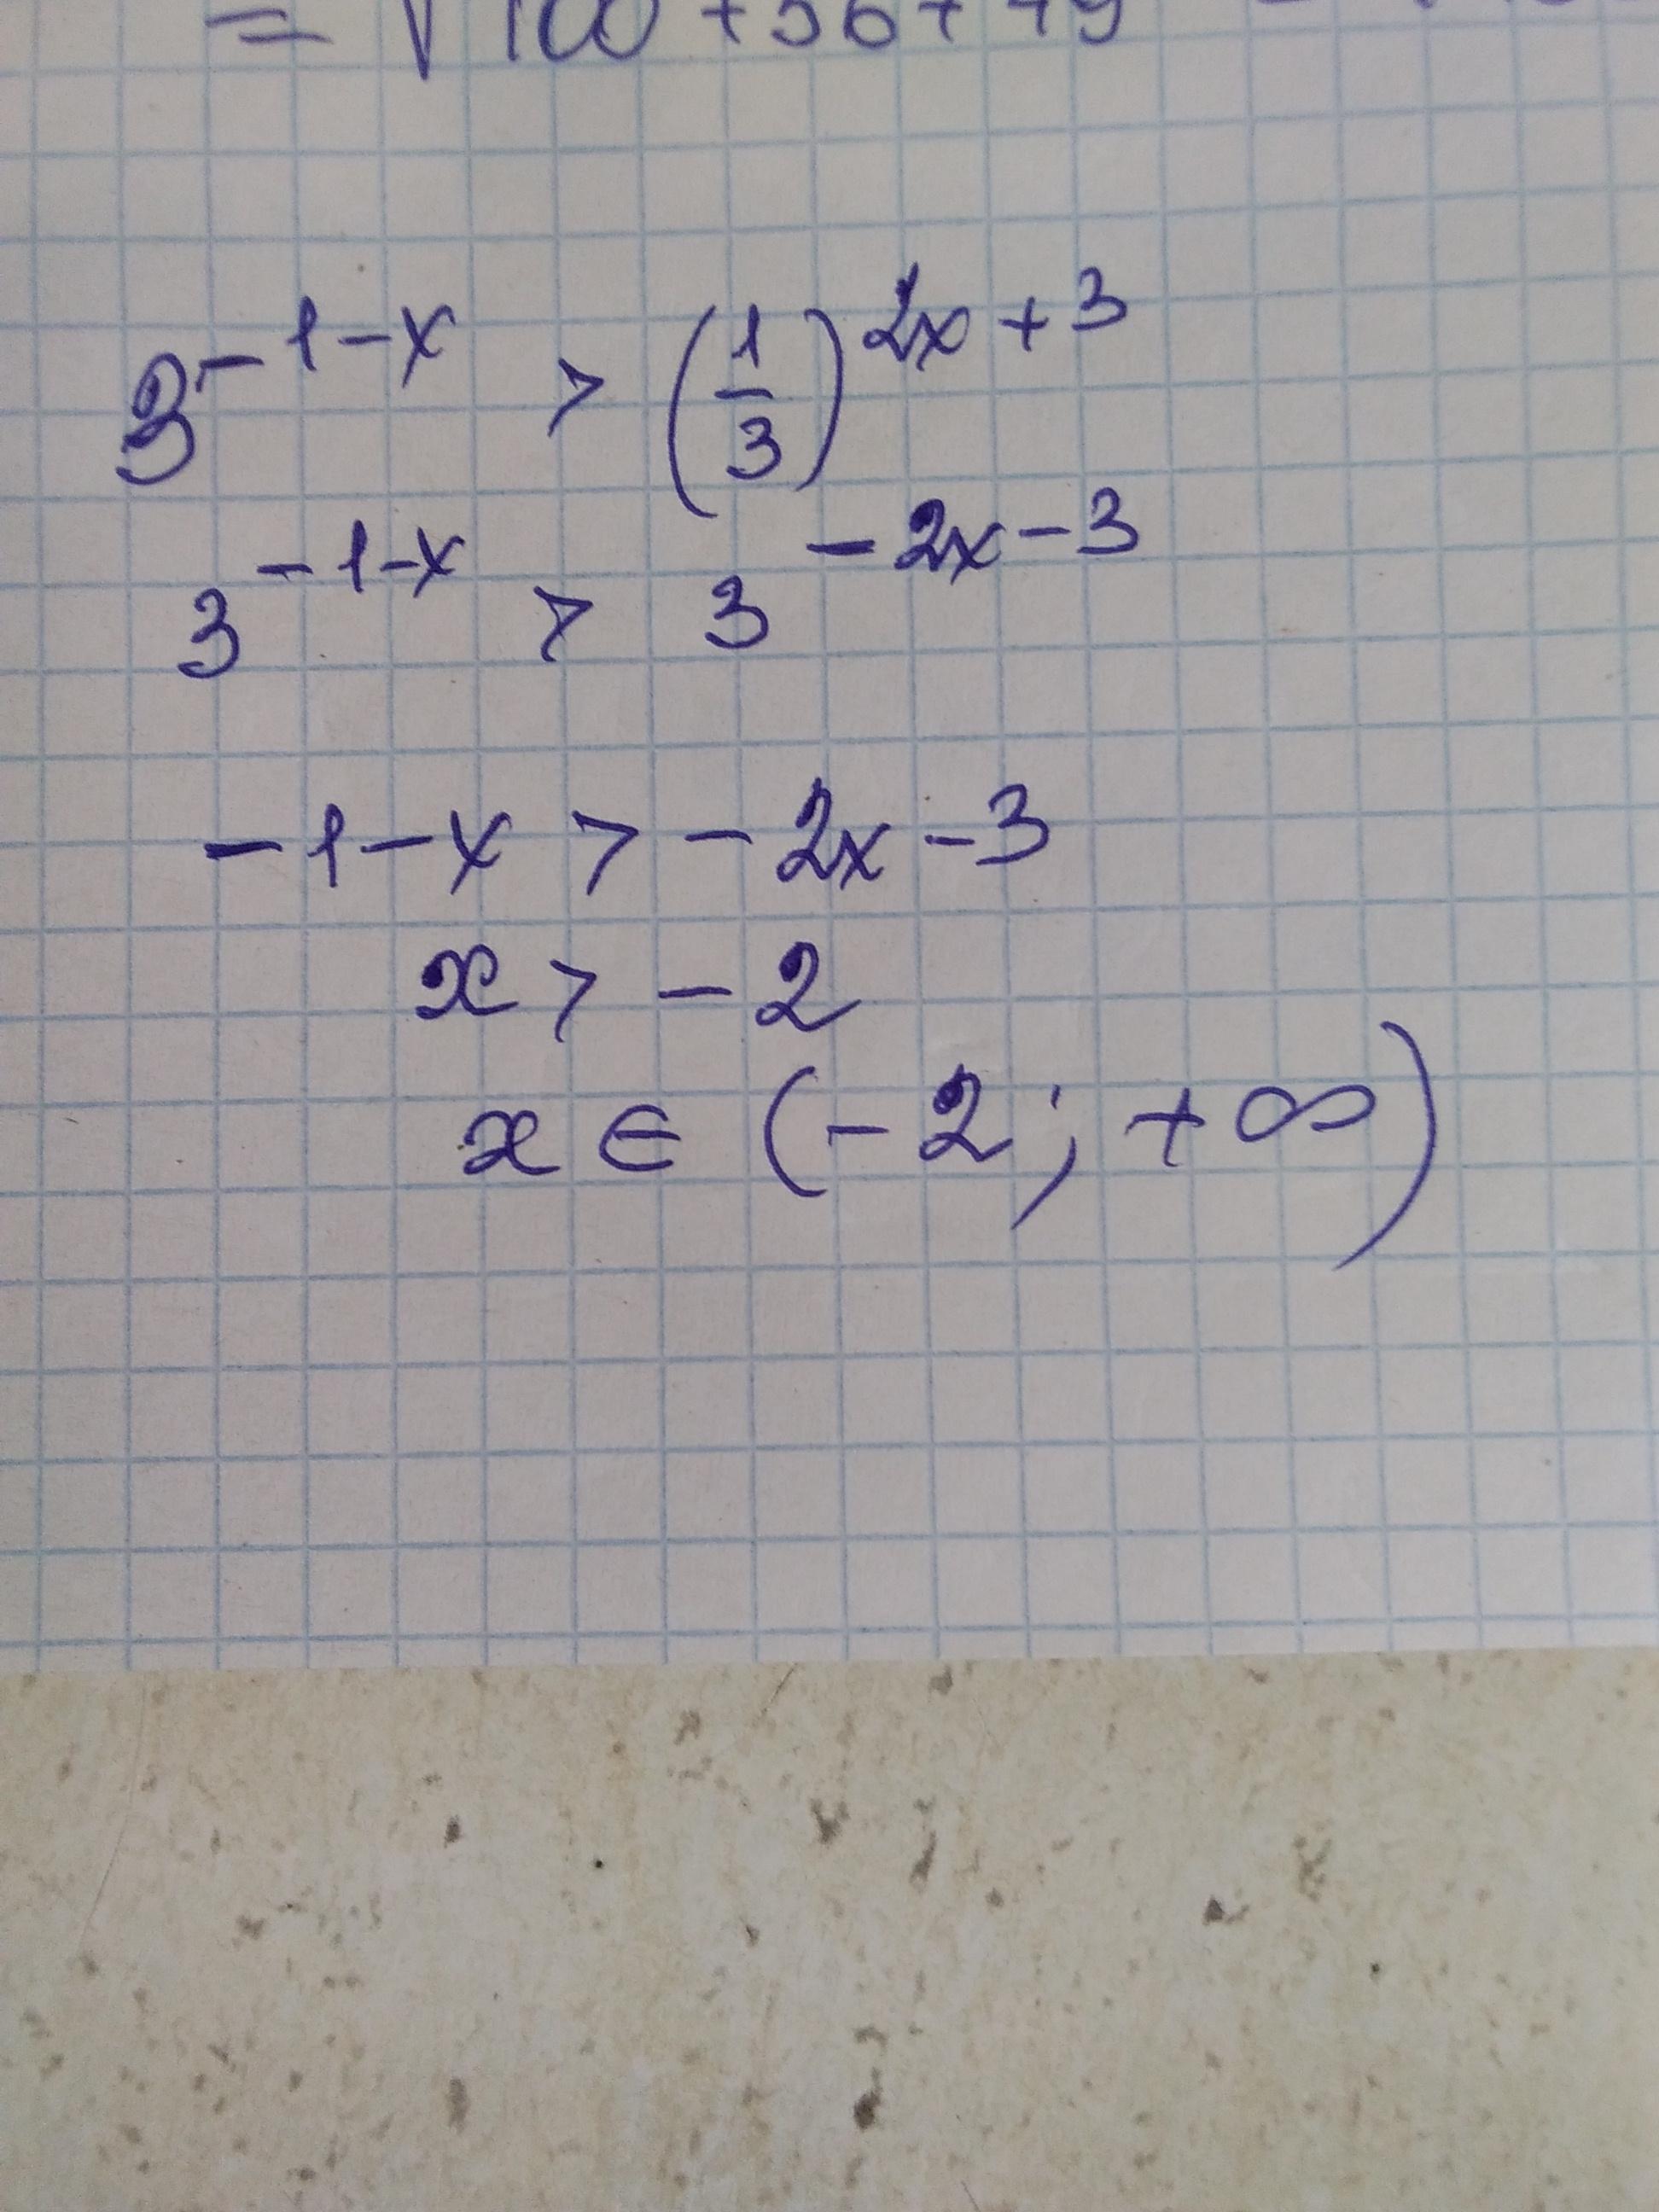 = √100 + 36 + 49
3^{-1-x} > (1/3)^{2x+3}
3^{-1-x} > 3^{-2x-3}
-1-x > -2x-3
x > -2
x ∈ (-2; +∞)